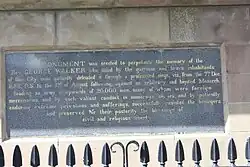 MONUMENT was erected to perpetuate the memory of the
Rev GEORGE WALKER who aided by the garrison and brave inhabitants
of this City most gallantly defended it through a protracted siege, viz, from the 7th Dec
1688 O.S to the 12th of August following against an arbitrary and bigoted Monarch
heading an army of upwards of 20,000 men many of whom were foreign
mercenaries and by such valiant conduct in numerous sorties and by patiently
enduring extreme privations and sufferings successfully resisted the besiegers
and preserved for their posterity the blessings of
civil and religious liberty